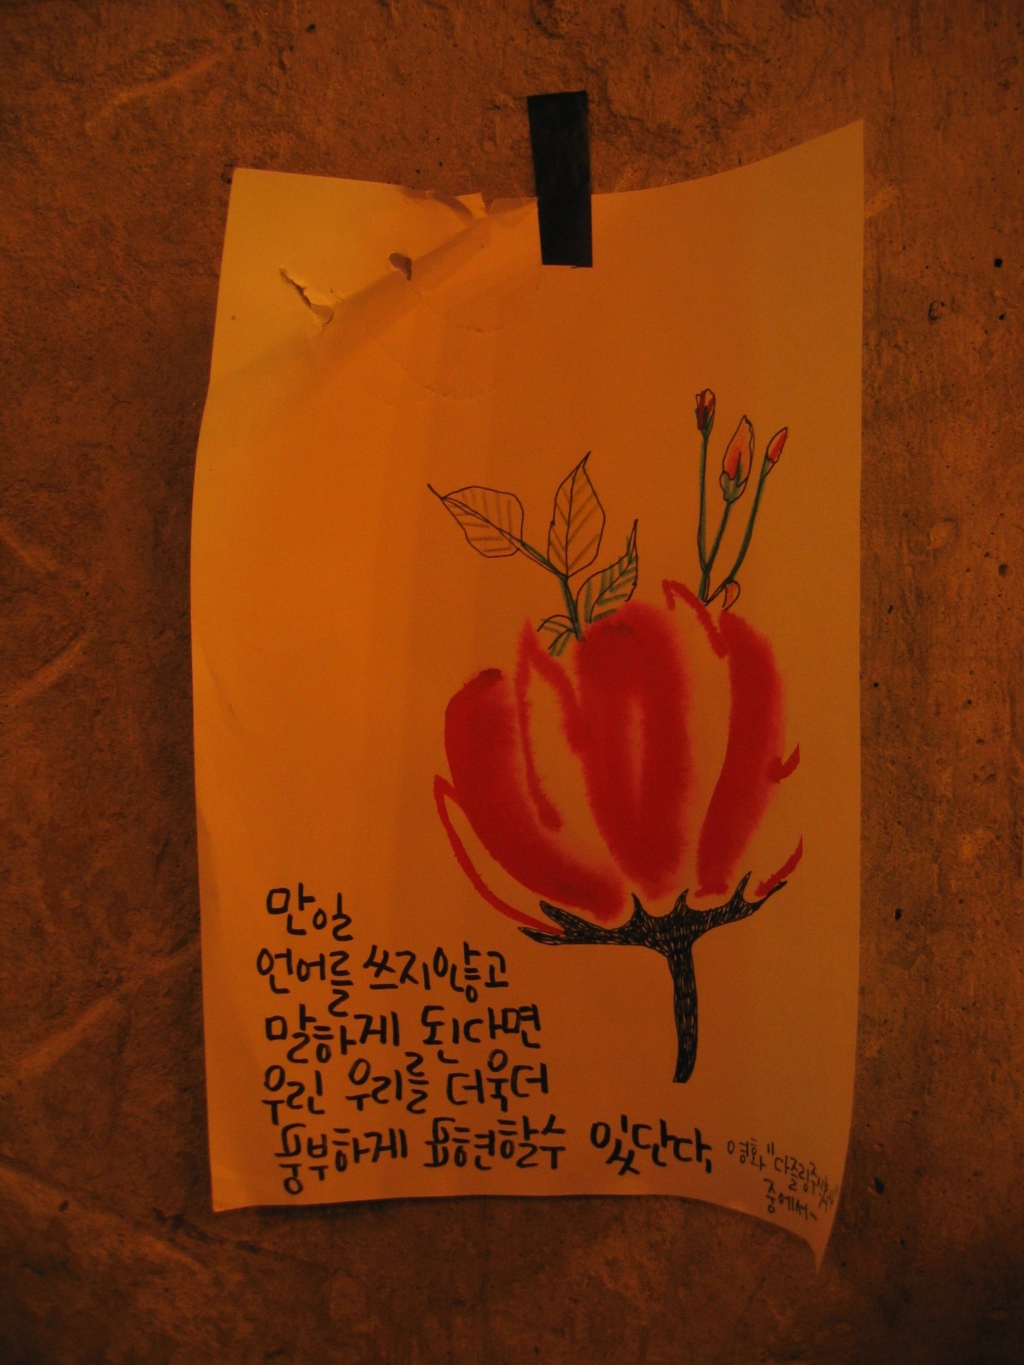 만일
언어를 쓰지않고
말하게 된다면
우린 우리를 더욱더
풍부하게 표현할수 있단다,
영화 "다즐링주식회사"
중에서~